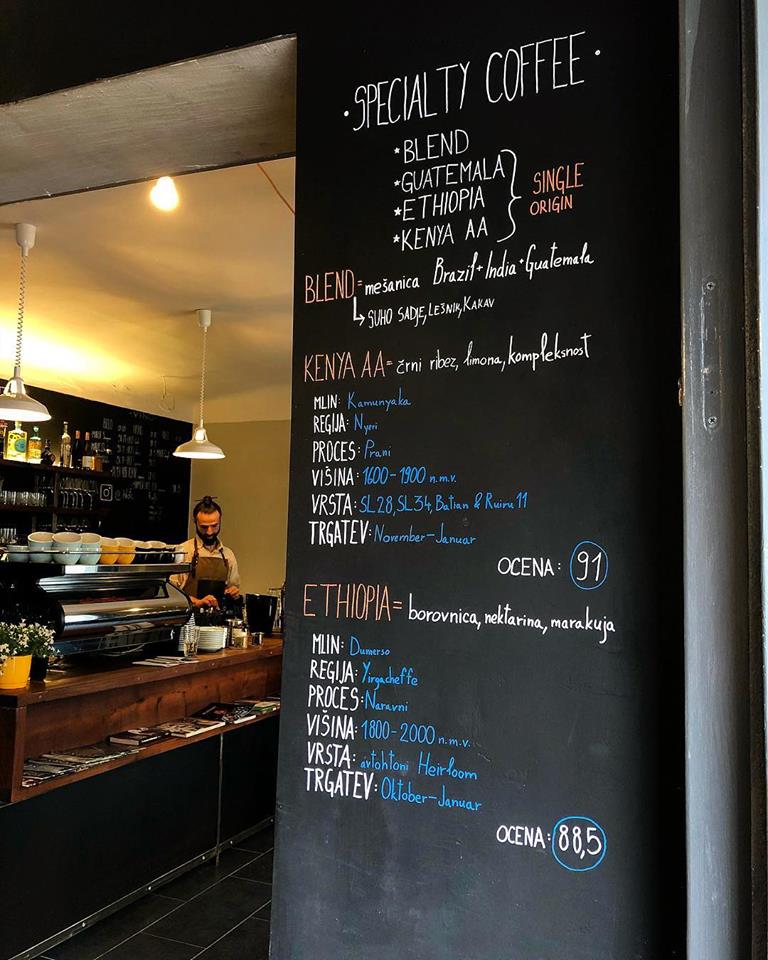 ·SPECIALTY COFFEE·
*BLEND
*GUATEMALA
*ETHIOPIA
*KENYA AA
SINGLE
ORIGIN
BLEND=mešanica Brazil+India+Guatemala
SUHO SADJE, LEŠNIK, KAKAV
KENYA AA= črni ribez, limona, kompleksnost
MLIN: Kamunyaka
REGIJA: Nyeri
PROCES: Prani
VIŠINA: 1600-1900 n.m.v.
VRSTA: SL28, SL34, Batian & Ruiru 11
TRGATEV: November-Januar
OCENA: 91
ETHIOPIA= borovnica, nektarina, marakuja
MLIN: Dumerso
REGIJA: Yirgacheffe
PROCES: Naravni
VIŠINA: 1800-2000 n.m.v.
VRSTA: avtohtoni Heirloom
TRGATEV: Oktober-Januar
OCENA: 88,5